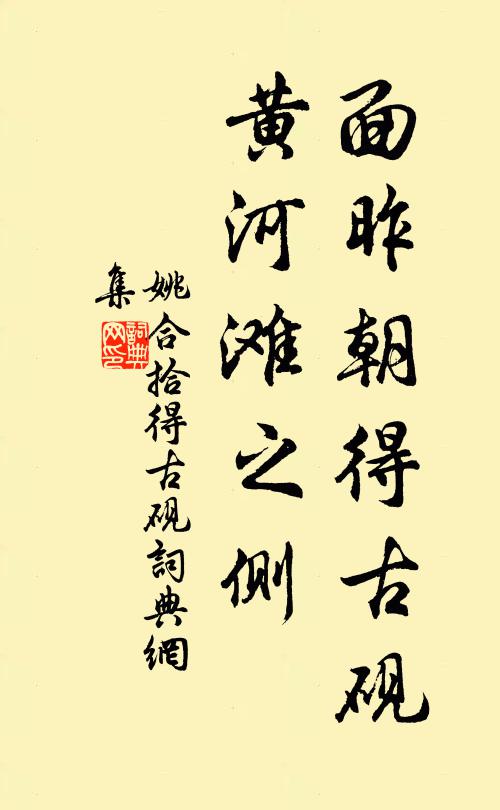 面昨朝得古砚
黄河滩之侧
姚合拾得古砚詞典網
集
詞典网印